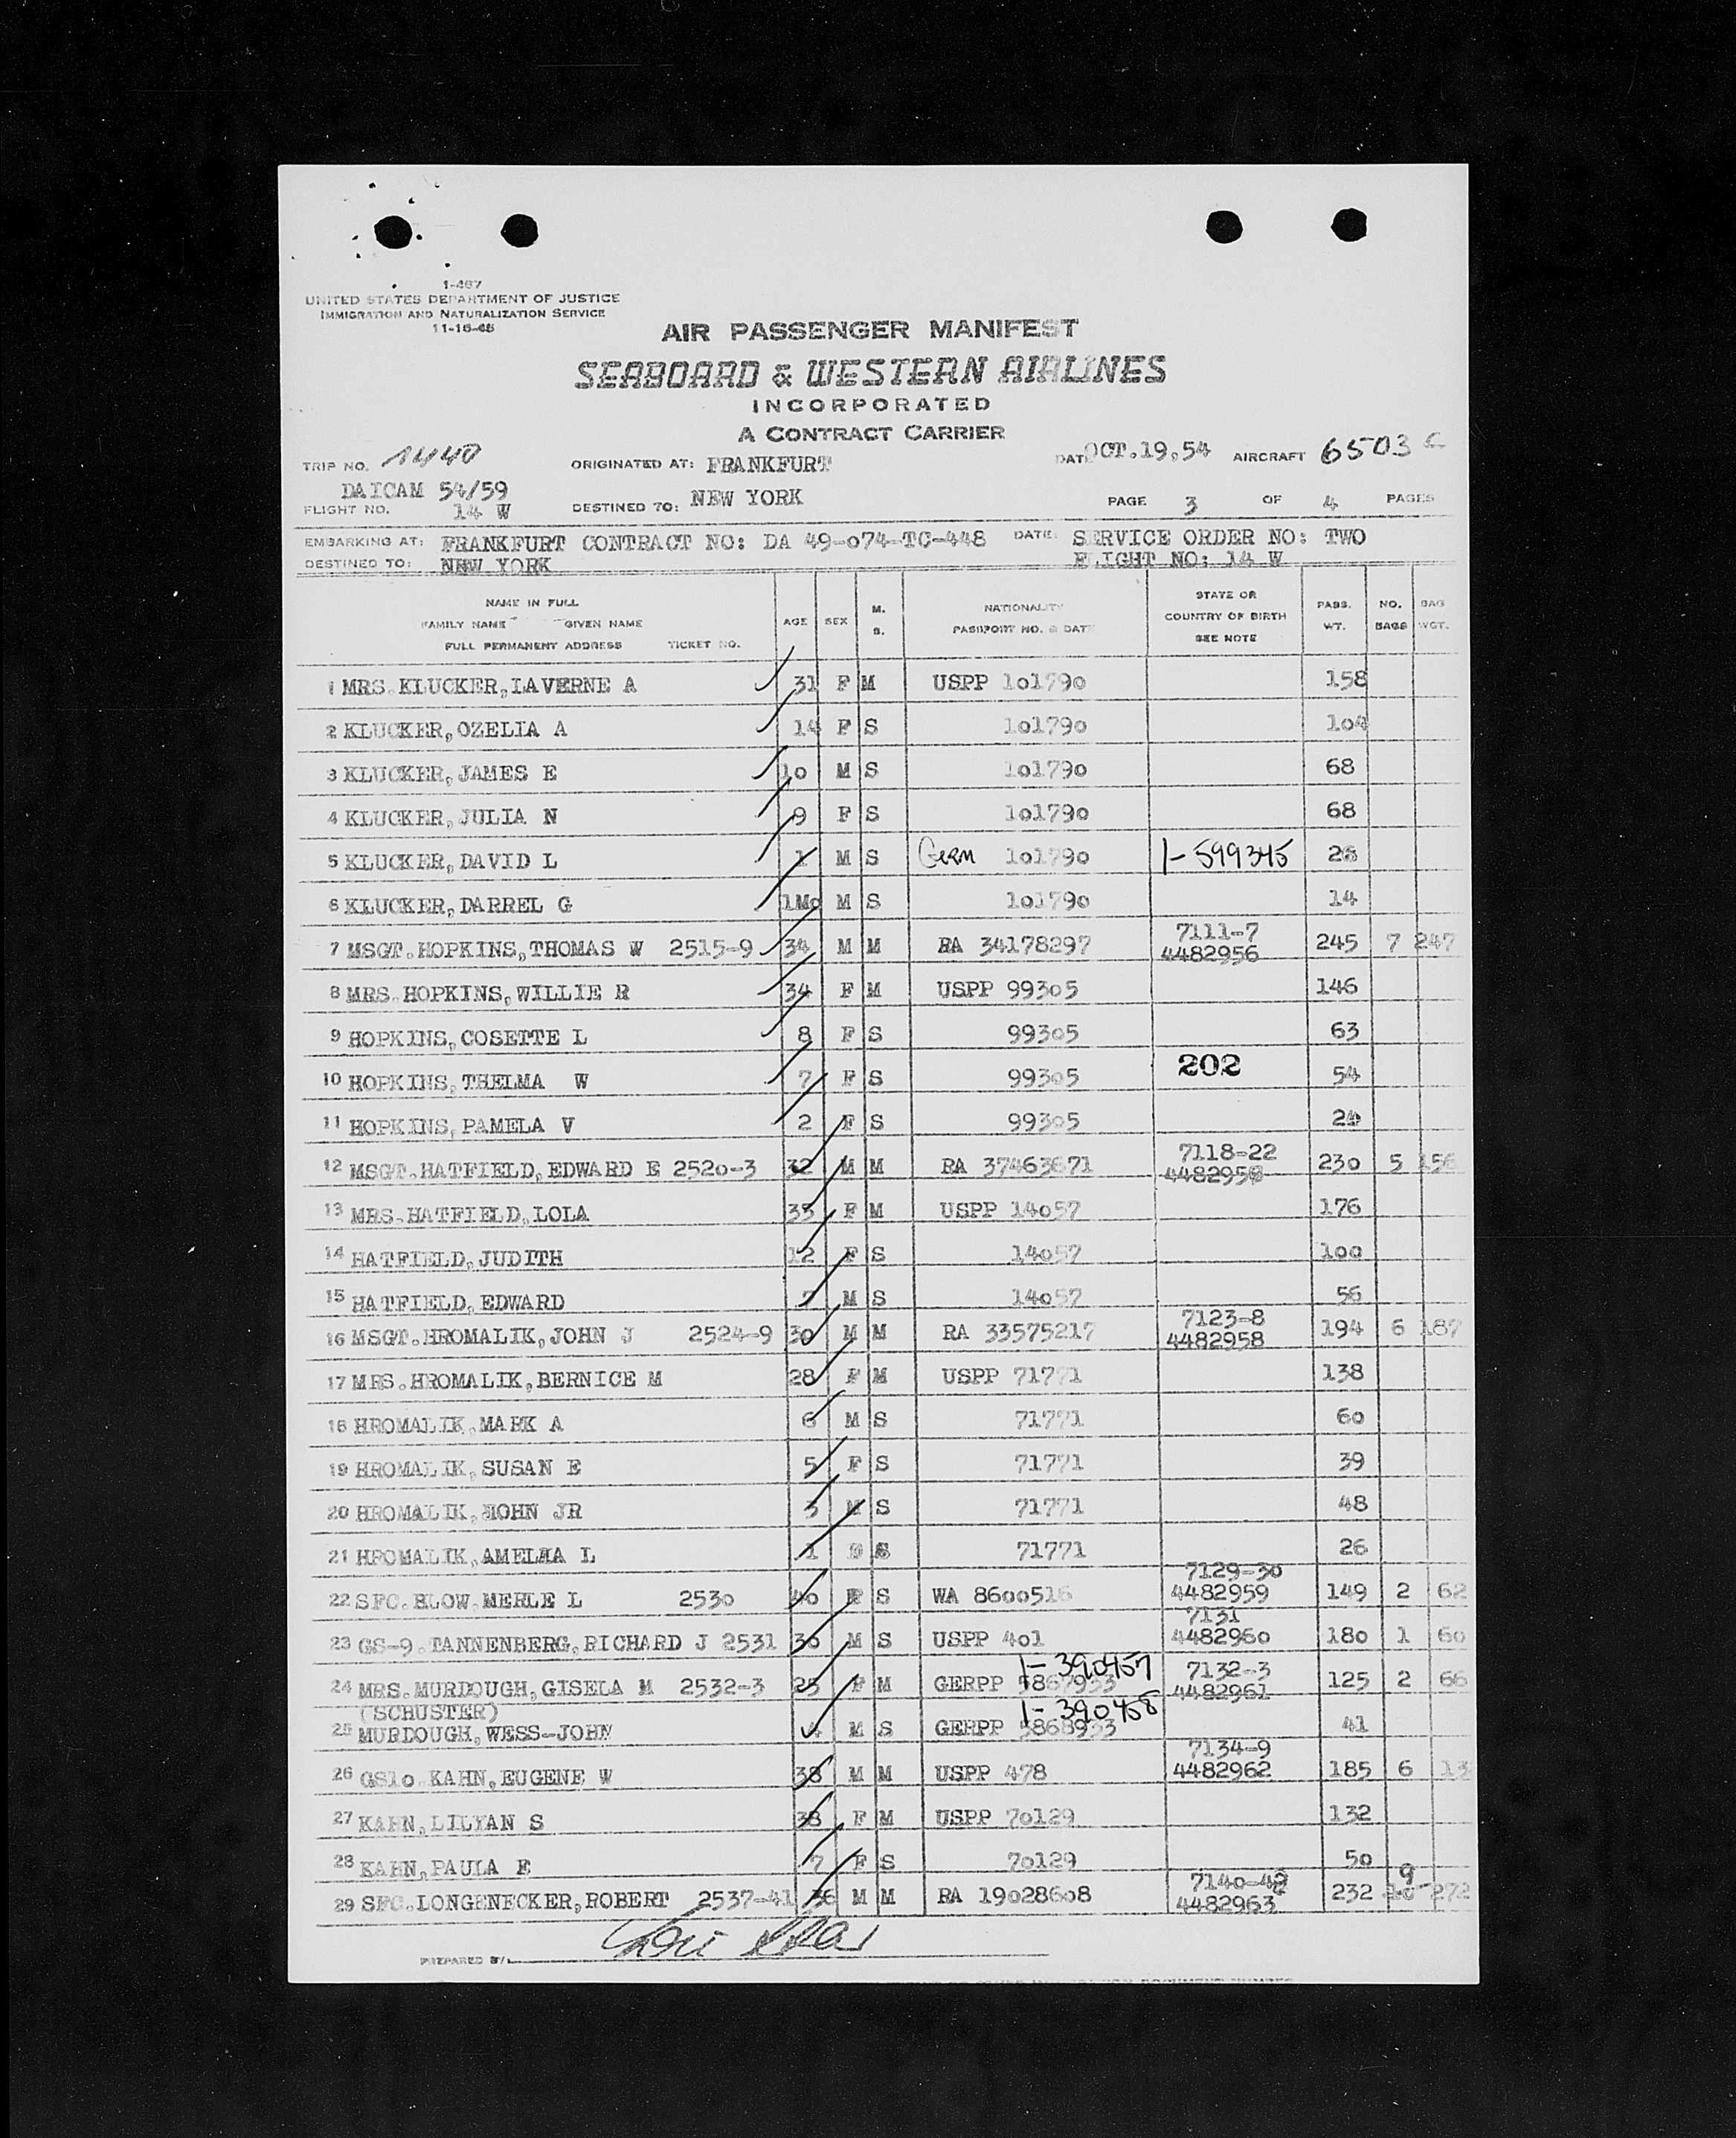 1-467
UNITED STATES DEPARTMENT OF JUSTICE
IMMIGRATION AND NATURALIZATION SERVICE
11-16-48
AIR PASSENGER MANIFEST
SEABOARD & WESTERN AIRLINES
INCORPORATED
A CONTRACT CARRIER
TRIP NO. 1440 ORIGINATED AT: FRANKFURT DATE OCT.19,54 AIRCRAFT 6503 C
DAICAM 54/59
FLIGHT NO. 14 W DESTINED TO: NEW YORK PAGE 3 OF 4 PAGES
EMBARKING AT: FRANKFURT CONTRACT NO: DA 49-074-TC-448 DATE: SERVICE ORDER NO: TWO
DESTINED TO: NEW YORK FLIGHT NO: 14 W
NAME IN FULL
FAMILY NAME GIVEN NAME
FULL PERMANENT ADDRESS TICKET NO. AGE SEX M. S. NATIONALITY PASSPORT NO. & DATE STATE OR COUNTRY OF BIRTH SEE NOTE PASS. WT. NO. BAGS BAG WGT.
1 MRS.KLUCKER,LAVERNE A 31 F M USPP 101790 158
2 KLUCKER,OZELIA A 14 F S 101790 104
3 KLUCKER,JAMES E 10 M S 101790 68
4 KLUCKER,JULIA N 9 F S 101790 68
5 KLUCKER,DAVID L 1 M S Germ 101790 1-599345 28
6 KLUCKER,DARREL G 1Mo M S 101790 14
7 MSGT.HOPKINS,THOMAS W 2515-9 34 M M RA 34178297 7111-7 4482956 245 7 247
8 MRS.HOPKINS,WILLIE R 34 F M USPP 99305 146
9 HOPKINS,COSETTE L 8 F S 99305 63
10 HOPKINS,THELMA W 7 F S 99305 202 54
11 HOPKINS,PAMELA V 2 F S 99305 24
12 MSGT.HATFIELD,EDWARD E 2520-3 32 M M RA 37463671 7118-22 4482957 230 5 156
13 MRS.HATFIELD,LOLA 33 F M USPP 14057 176
14 HATFIELD,JUDITH 12 F S 14057 100
15 HATFIELD,EDWARD 7 M S 14057 56
16 MSGT.HROMALIK,JOHN J 2524-9 30 M M RA 33575217 7123-8 4482958 194 6 187
17 MRS.HROMALIK,BERNICE M 28 F M USPP 71771 138
18 HROMALIK,MARK A 6 M S 71771 60
19 HROMALIK,SUSAN E 5 F S 71771 39
20 HROMALIK,JOHN JR 3 M S 71771 48
21 HROMALIK,AMELIA L 1 S 71771 26
22 SFC.BLOW,MERLE L 2530 40 F S WA 8600516 7129-30 4482959 149 2 62
23 GS-9.TANNENBERG,RICHARD J 2531 30 M S USPP 401 7131 4482960 180 1 60
24 MRS.MURDOUGH,GISELA M 2532-3 25 F M GERPP 5867953 1-390457 7132-3 4482961 125 2 66
(SCHUSTER)
25 MURDOUGH,WESS-JOHN 4 M S GERPP 5868953 1-390458 41
26 GS10.KAHN,EUGENE W 38 M M USPP 478 7134-9 4482962 185 6 13
27 KAHN,LILYAN S 38 F M USPP 70129 132
28 KAHN,PAULA E 7 F S 70129 50
29 SFC.LONGENECKER,ROBERT 2537-41 36 M M RA 19028608 7140-48 4482963 232 9 272
PREPARED BY